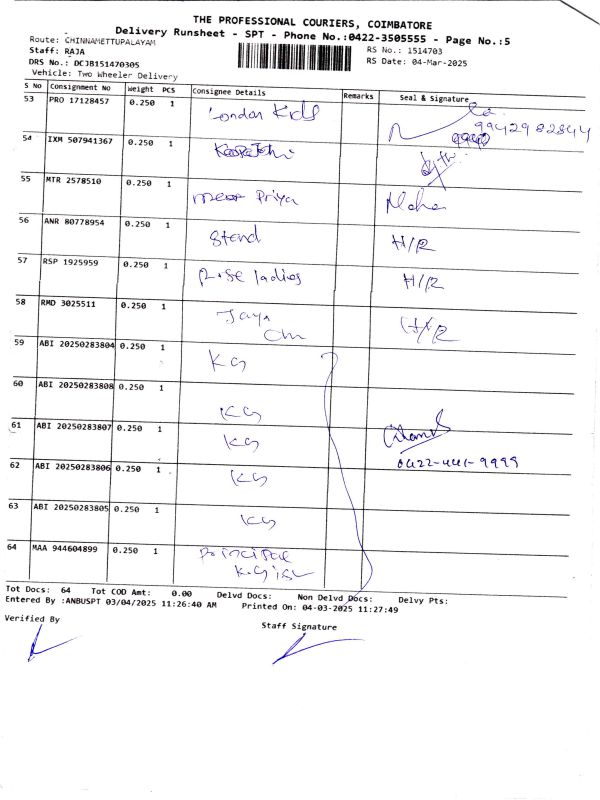 THE PROFESSIONAL COURIERS, COIMBATORE
Delivery Runsheet - SPT - Phone No.:0422-3505555 - Page No.:5
Route: CHINNAMETTUPALAYAM
RS No.: 1514703
Staff: RAJA
RS Date: 04-Mar-2025
DRS No.: DCJB151470305
Vehicle: Two Wheeler Delivery
S No Consignment No Weight PCS Consignee Details Remarks Seal & Signature
53 PRO 17128457 0.250 1 London Kids 9942982844
54 IXM 507941367 0.250 1
55 MTR 2578510 0.250 1 Priya
56 ANR 80778954 0.250 1 Stand H/R
57 RSP 1925959 0.250 1 Rose ladies H/R
58 RMD 3025511 0.250 1 Jaya H/R
59 ABI 20250283804 0.250 1 KG
60 ABI 20250283808 0.250 1 KG
61 ABI 20250283807 0.250 1 KG
0422-441-9999
62 ABI 20250283806 0.250 1 KG
63 ABI 20250283805 0.250 1 KG
64 MAA 944604899 0.250 1 Principal
Tot Docs: 64 Tot COD Amt: 0.00 Delvd Docs: Non Delvd Docs: Delvy Pts:
Entered By :ANBUSPT 03/04/2025 11:26:40 AM Printed On: 04-03-2025 11:27:49
Verified By
Staff Signature